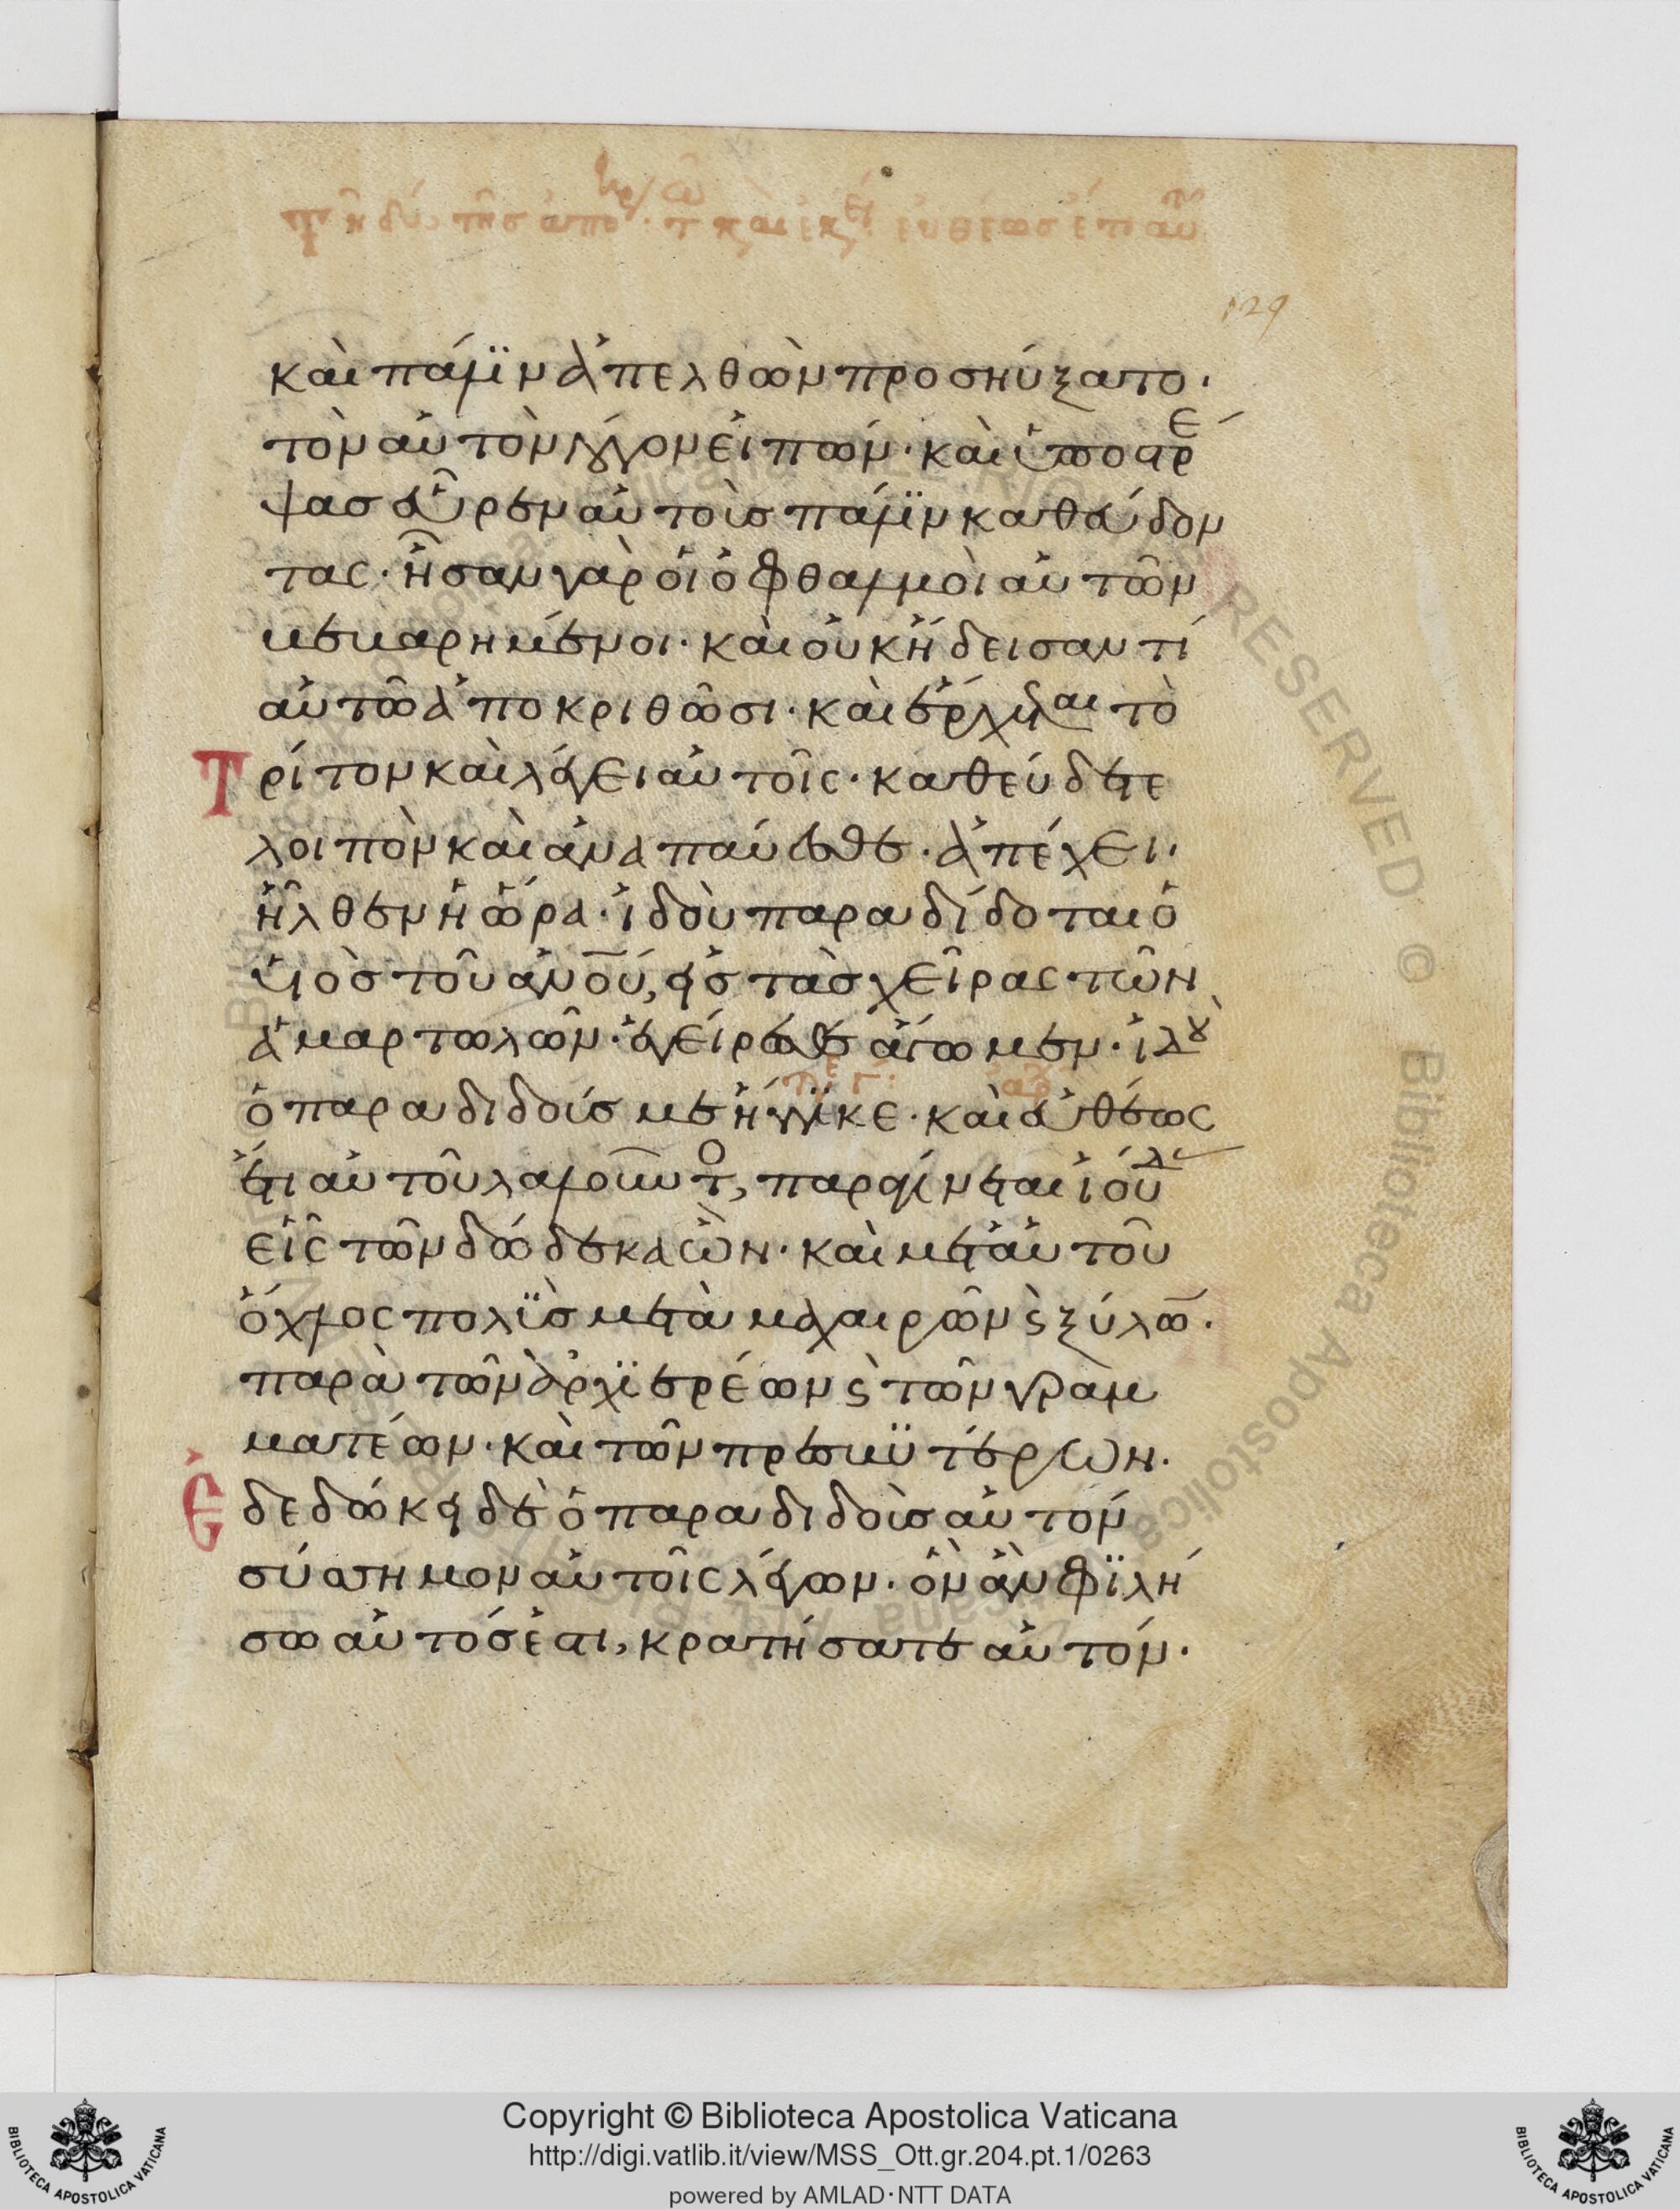 129
καὶ πάλϊν ἀπελθὼν προσηύξατο·
τὸν αὐτὸν λόγον εἰπών· καὶ ὑποστρέ
ψας εὗρεν αὐτοὺς πάλϊν καθεύδον
τας· ἦσαν γὰρ οἱ ὀφθαλμοὶ αὐτῶν
βεβαρημένοι· καὶ οὐκ ἤδεισαν τί
αὐτῶ ἀποκριθῶσι· καὶ ἔρχεται τὸ
Τρίτον καὶ λέγει αὐτοῖς· καθεύδετε
λοιπὸν καὶ ἀναπαύεσθε· ἀπέχει·
ἦλθεν ἡ ὥρα· ἰδοὺ παραδίδοται ὁ
υἱὸς τοῦ ἀνου, εἰς τὰς χεῖρας τῶν
ἁμαρτωλῶν· ἐγείρεσθε ἄγωμεν· ἰδοὺ
ὁ παραδιδούς με ἤγγϊκε· καὶ εὐθέως
ἔτι αὐτοῦ λαλοῦντο, παραγίνεται ἰούδ
εἷς τῶν δώδεκα ὢν· καὶ μετ' αὐτοῦ
ὄχλος πολϋὺς μετὰ μαχαιρῶν ϛ ξύλω̄·
παρὰ τῶν ἀρχϊερέων ϛ τῶν γραμ
ματέων· καὶ τῶν πρεσβϋτέρων·
Ἐδεδώκει δὲ ὁ παραδιδοὺς αὐτὸν
σύσσημον αὐτοῖς λέγων· ὃν ἂν φϊλή
σω αὐτός ἐστι, κρατήσατε αὐτόν·
Copyright © Biblioteca Apostolica Vaticana
http://digi.vatlib.it/view/MSS_Ott.gr.204.pt.1/0263
powered by AMLAD·NTT DATA
BIBLIOTECA APOSTOLICA VATICANA
BIBLIOTECA APOSTOLICA VATICANA